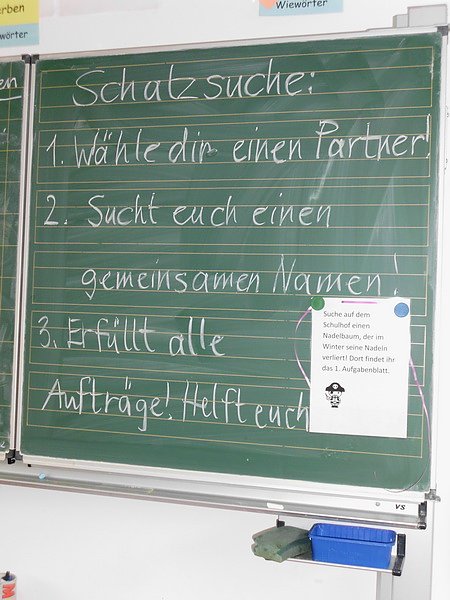 erben
wörter
Wiewörter
en
Schatzsuche:
1. Wähle dir einen Partner!
2. Sucht euch einen
gemeinsamen Namen!
3. Erfüllt alle
Aufträge! Helft euch
Suche auf dem
Schulhof einen
Nadelbaum, der im
Winter seine Nadeln
verliert! Dort findet ihr
das 1. Aufgabenblatt.
VS
M